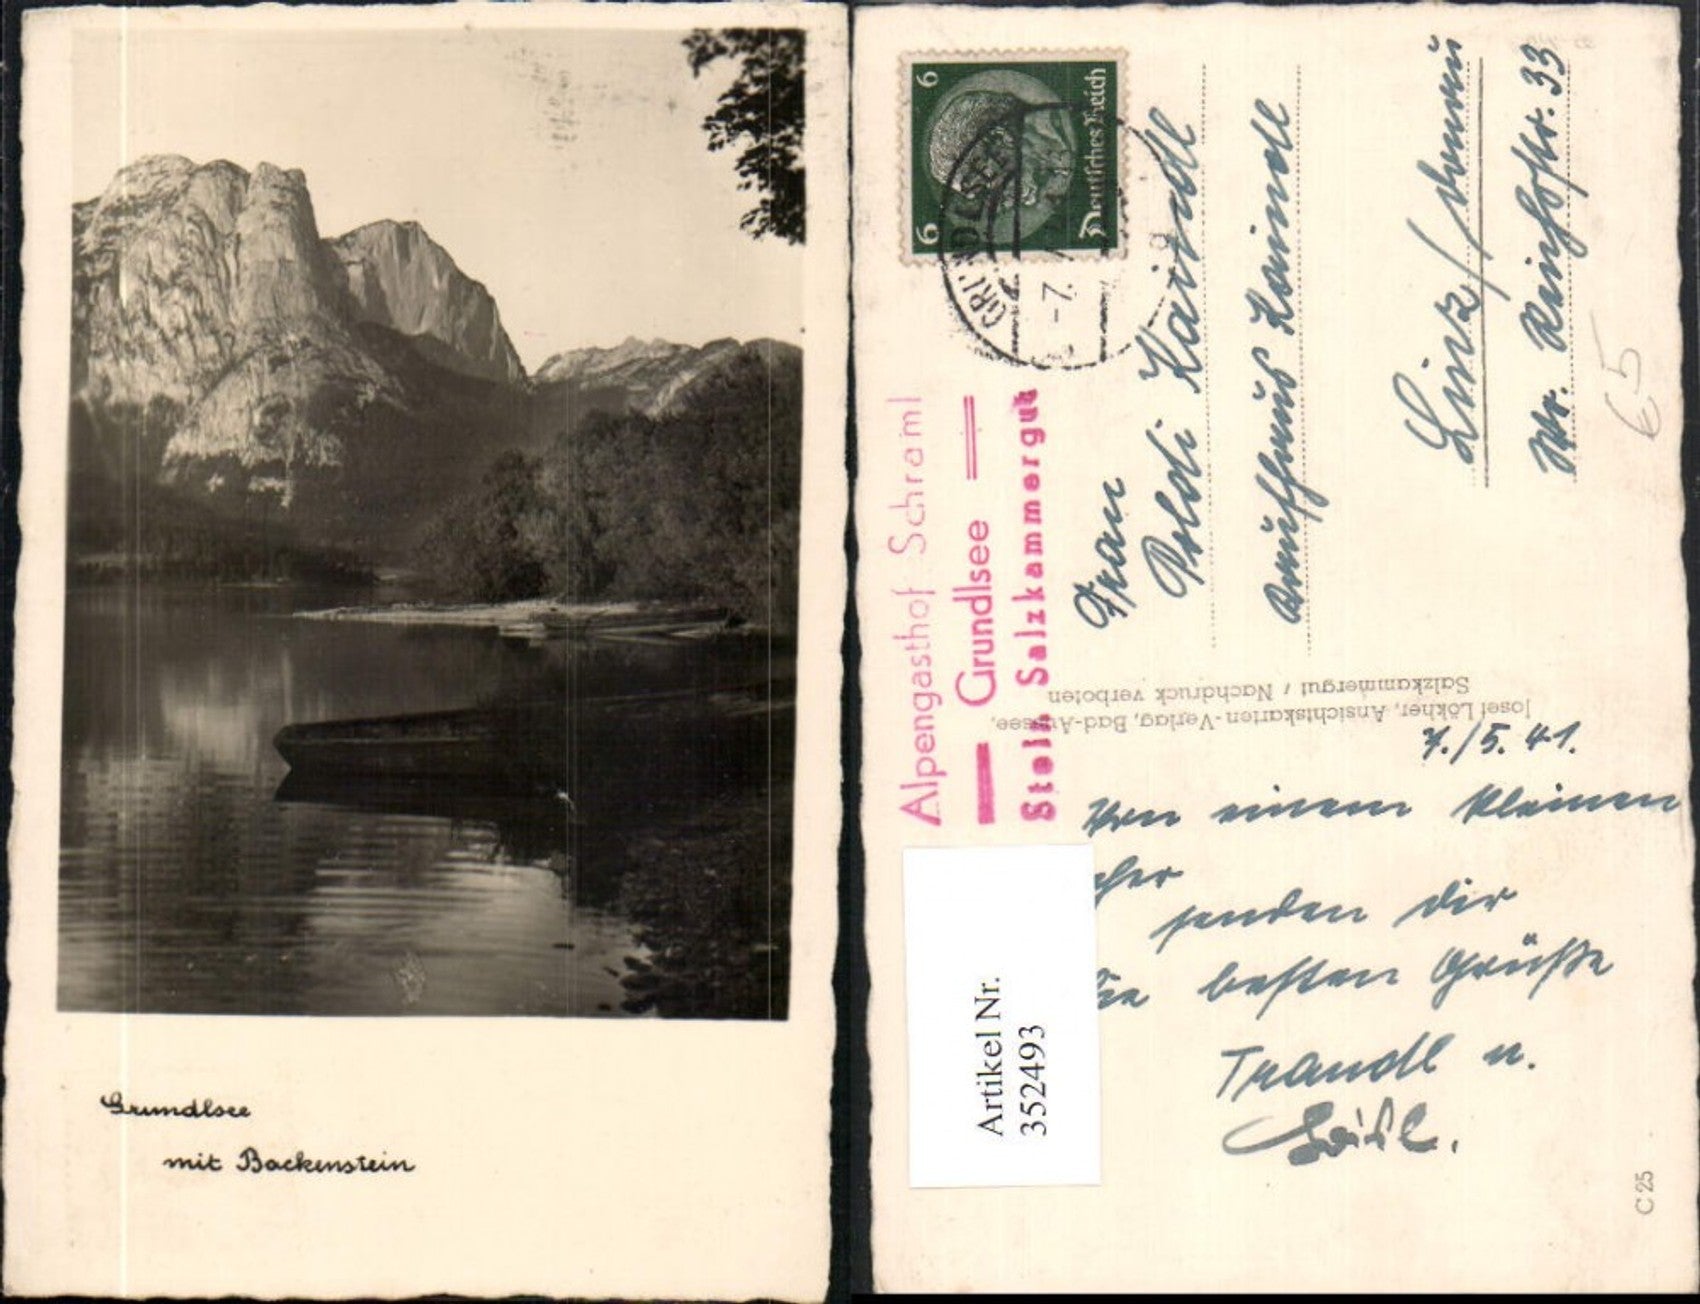 Grundlsee
mit Backenstein
6 6
Deutsches Reich
GRUNDLSEE
-7.
Alpengasthof Schraml
Grundlsee
Stein Salzkammergut
Frau
Poldi Kaindl
Kaufhaus Kaindl
Linz/Donau
Wr. Reichsstr. 33
€5
Josef Lökher, Ansichtskarten-Verlag, Bad-Aussee,
Salzkammergut / Nachdruck verboten
7./5. 41.
Von einem kleinen
senden Dir
die besten Grüße
Traudl u.
Artikel Nr.
352493
C 25